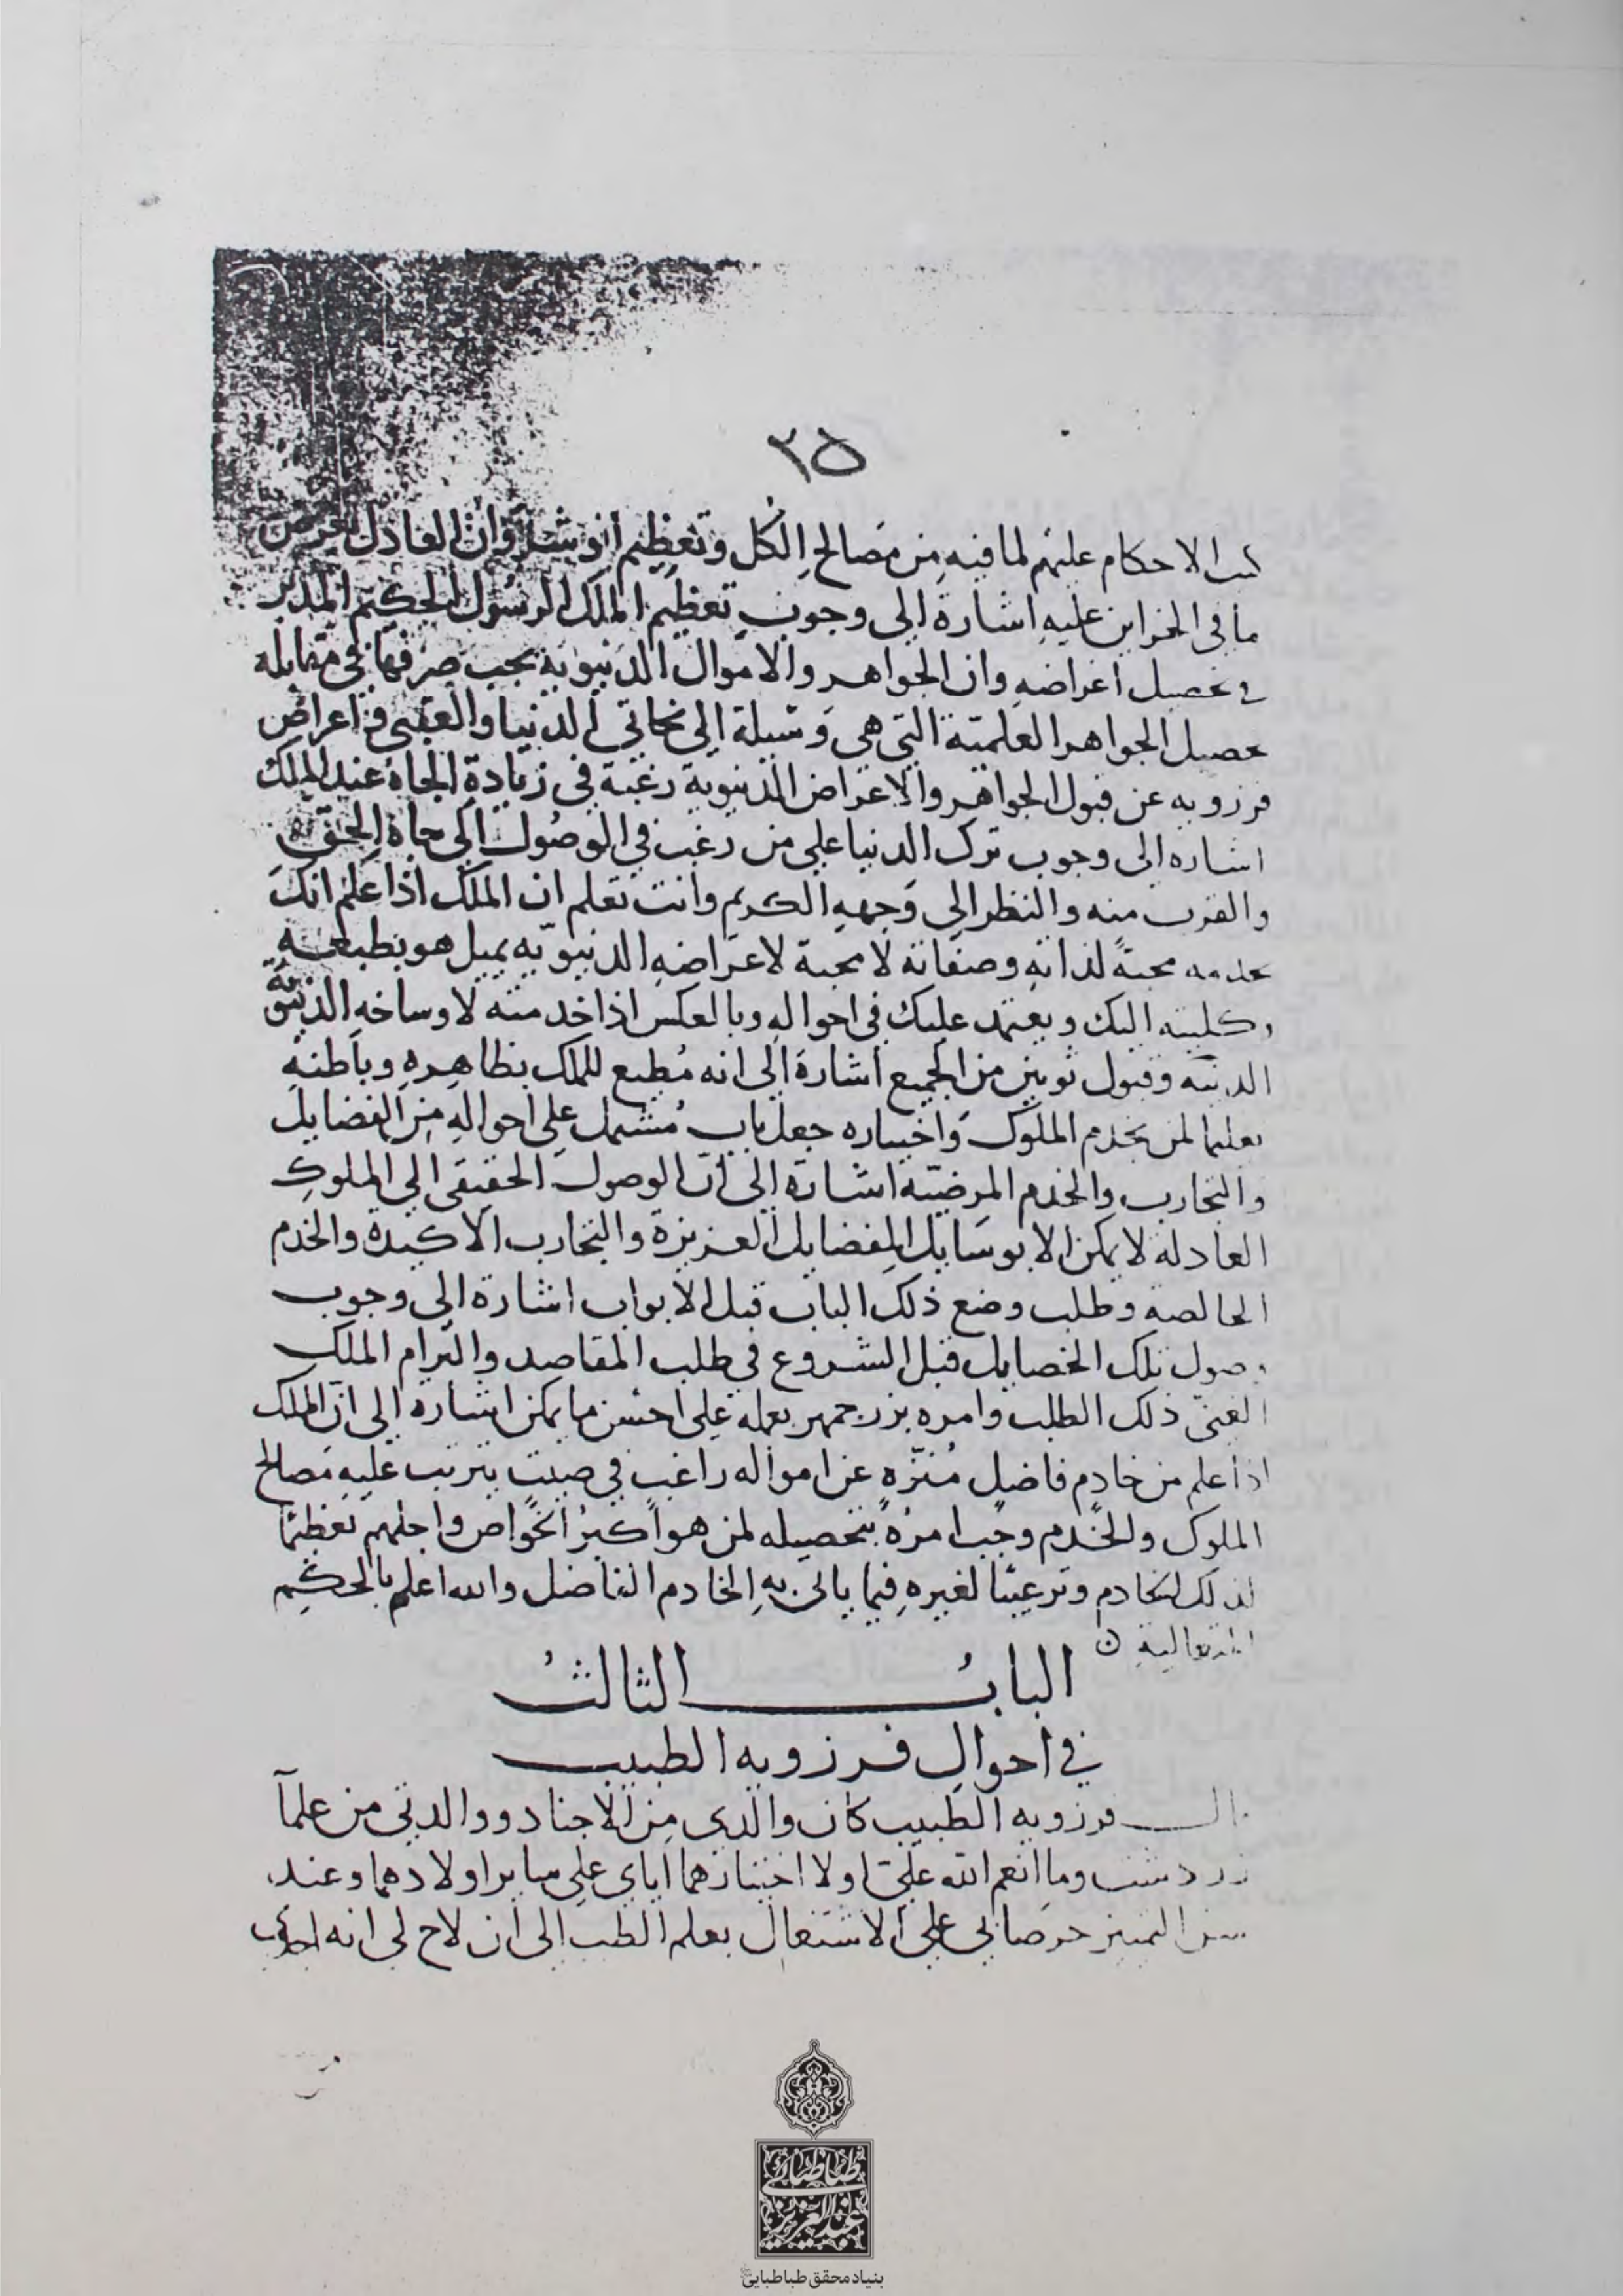 ٢٥
الاحكام عليهم لما فيه من مصالح الكل وتعظيم انوشروان العادل بعرض
ما في الخزاين عليه اشارة الى وجوب تعظيم الملك الرسول الحكيم المدبر
في تحصيل اغراضه وان الجواهر والاموال الدنيويه يجب صرفها في مقابله
تحصيل الجواهر العلميّة التي هي وسيلة الى نجاتي الدنيا والعقبى واعراض
فرزويه عن قبول الجواهر والاعراض الدنيوية رغبة في زيادة الجاه عند الملك
اشاره الى وجوب ترك الدنيا على من رغب في الوصول الى جاه الحق
والقرب منه والنظر الى وجهه الكريم وانت تعلم ان الملك اذا علم انك
تخدمه محبةً لذاته وصفاته لا محبة لاعراضه الدنيويّه يميل هو بطبعه
وكليته اليك ويعتمد عليك في احواله وبالعكس اذا خدمته لاوساخه الدنيويّة
الدنيّه وقبول ثوبين من الجميع اشارة الى انه مُطيع للملك بظاهره وباطنه
تعليما لمن يخدم الملوك واختياره جعل باب مُشتمل على احواله من الفضايل
والتجارب والخدم المرضيّه اشارة الى انّ الوصول الحقيقي الى الملوك
العادلة لا يمكن الا بوسايل الفضايل العزيزة والتجارب الاكيدة والخدم
الخالصة وطلب وضع ذلك الباب قبل الابواب اشارة الى وجوب
حصول تلك الخصايل قبل الشروع في طلب المقاصد والتزام الملك
الغنيّ ذلك الطلب وامره بزرجمهر بعمله على احسن ما يمكن اشارة الى انّ الملك
اذا علم من خادم فاضل مُنزّهٍ عن امواله راغب في صيت يترتب عليه مصالح
الملوك والخدم وجب امرهُ بتحصيله لمن هو اكبرُ الخواص واجلهم تعظيمًا
لذلك الخادم وترغيبًا لغيره فيما ياتي به الخادم الفاضل والله اعلم بالحكم
المتعالية
البابُ الثالثُ
في احوال فرزويه الطبيب
قال فرزويه الطبيب كان والدي من الاجناد ووالدتي من علمآ
زردشت وما انعم الله عليّ اولا اختيارهما اياي على سايراولادهما وعند
سن التميز حرضاني على الاشتغال بعلم الطب الى ان لاح لي انه
بنیاد محقق طباطبایی